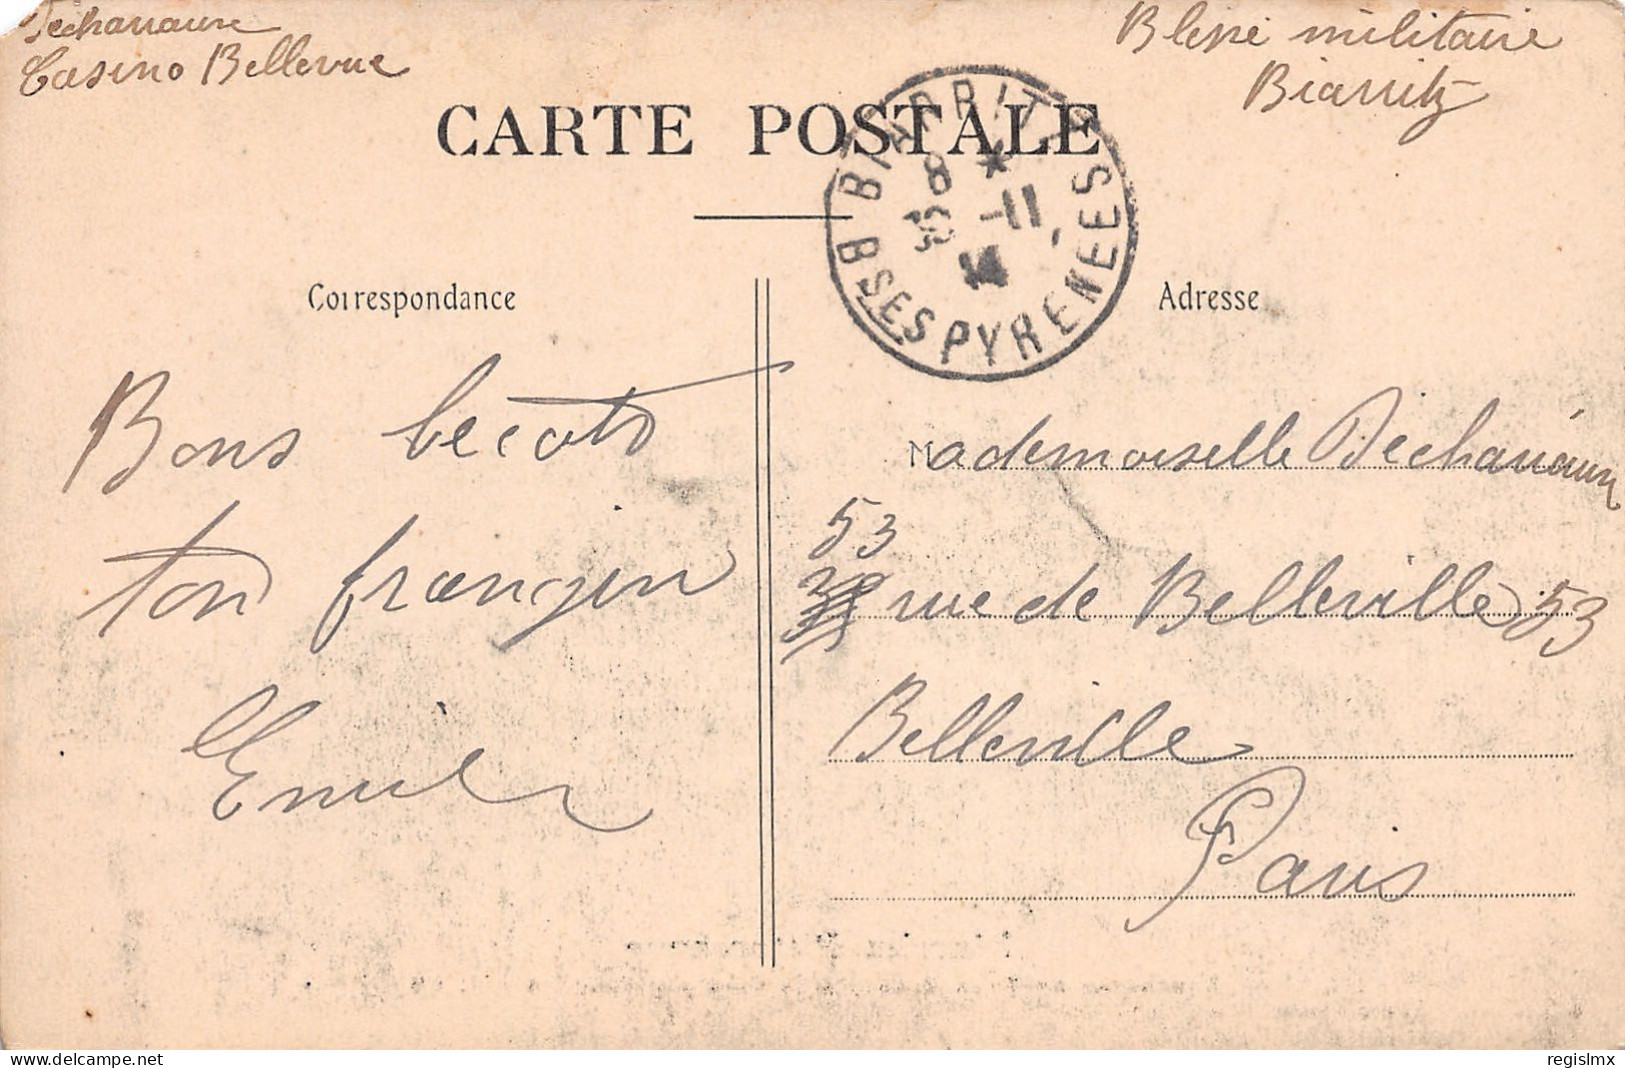 Dechanaux
Casino Bellevue
Blessé militaire
Biarritz
CARTE POSTALE
BIARRITZ
8 *
-11
14
BSES PYRENEES
Correspondance
Adresse
Bons bécots
ton frangin
Emile
Mademoiselle Dechanaux
53
rue de Belleville 53
Belleville
Paris
delcampe.net
regislmx